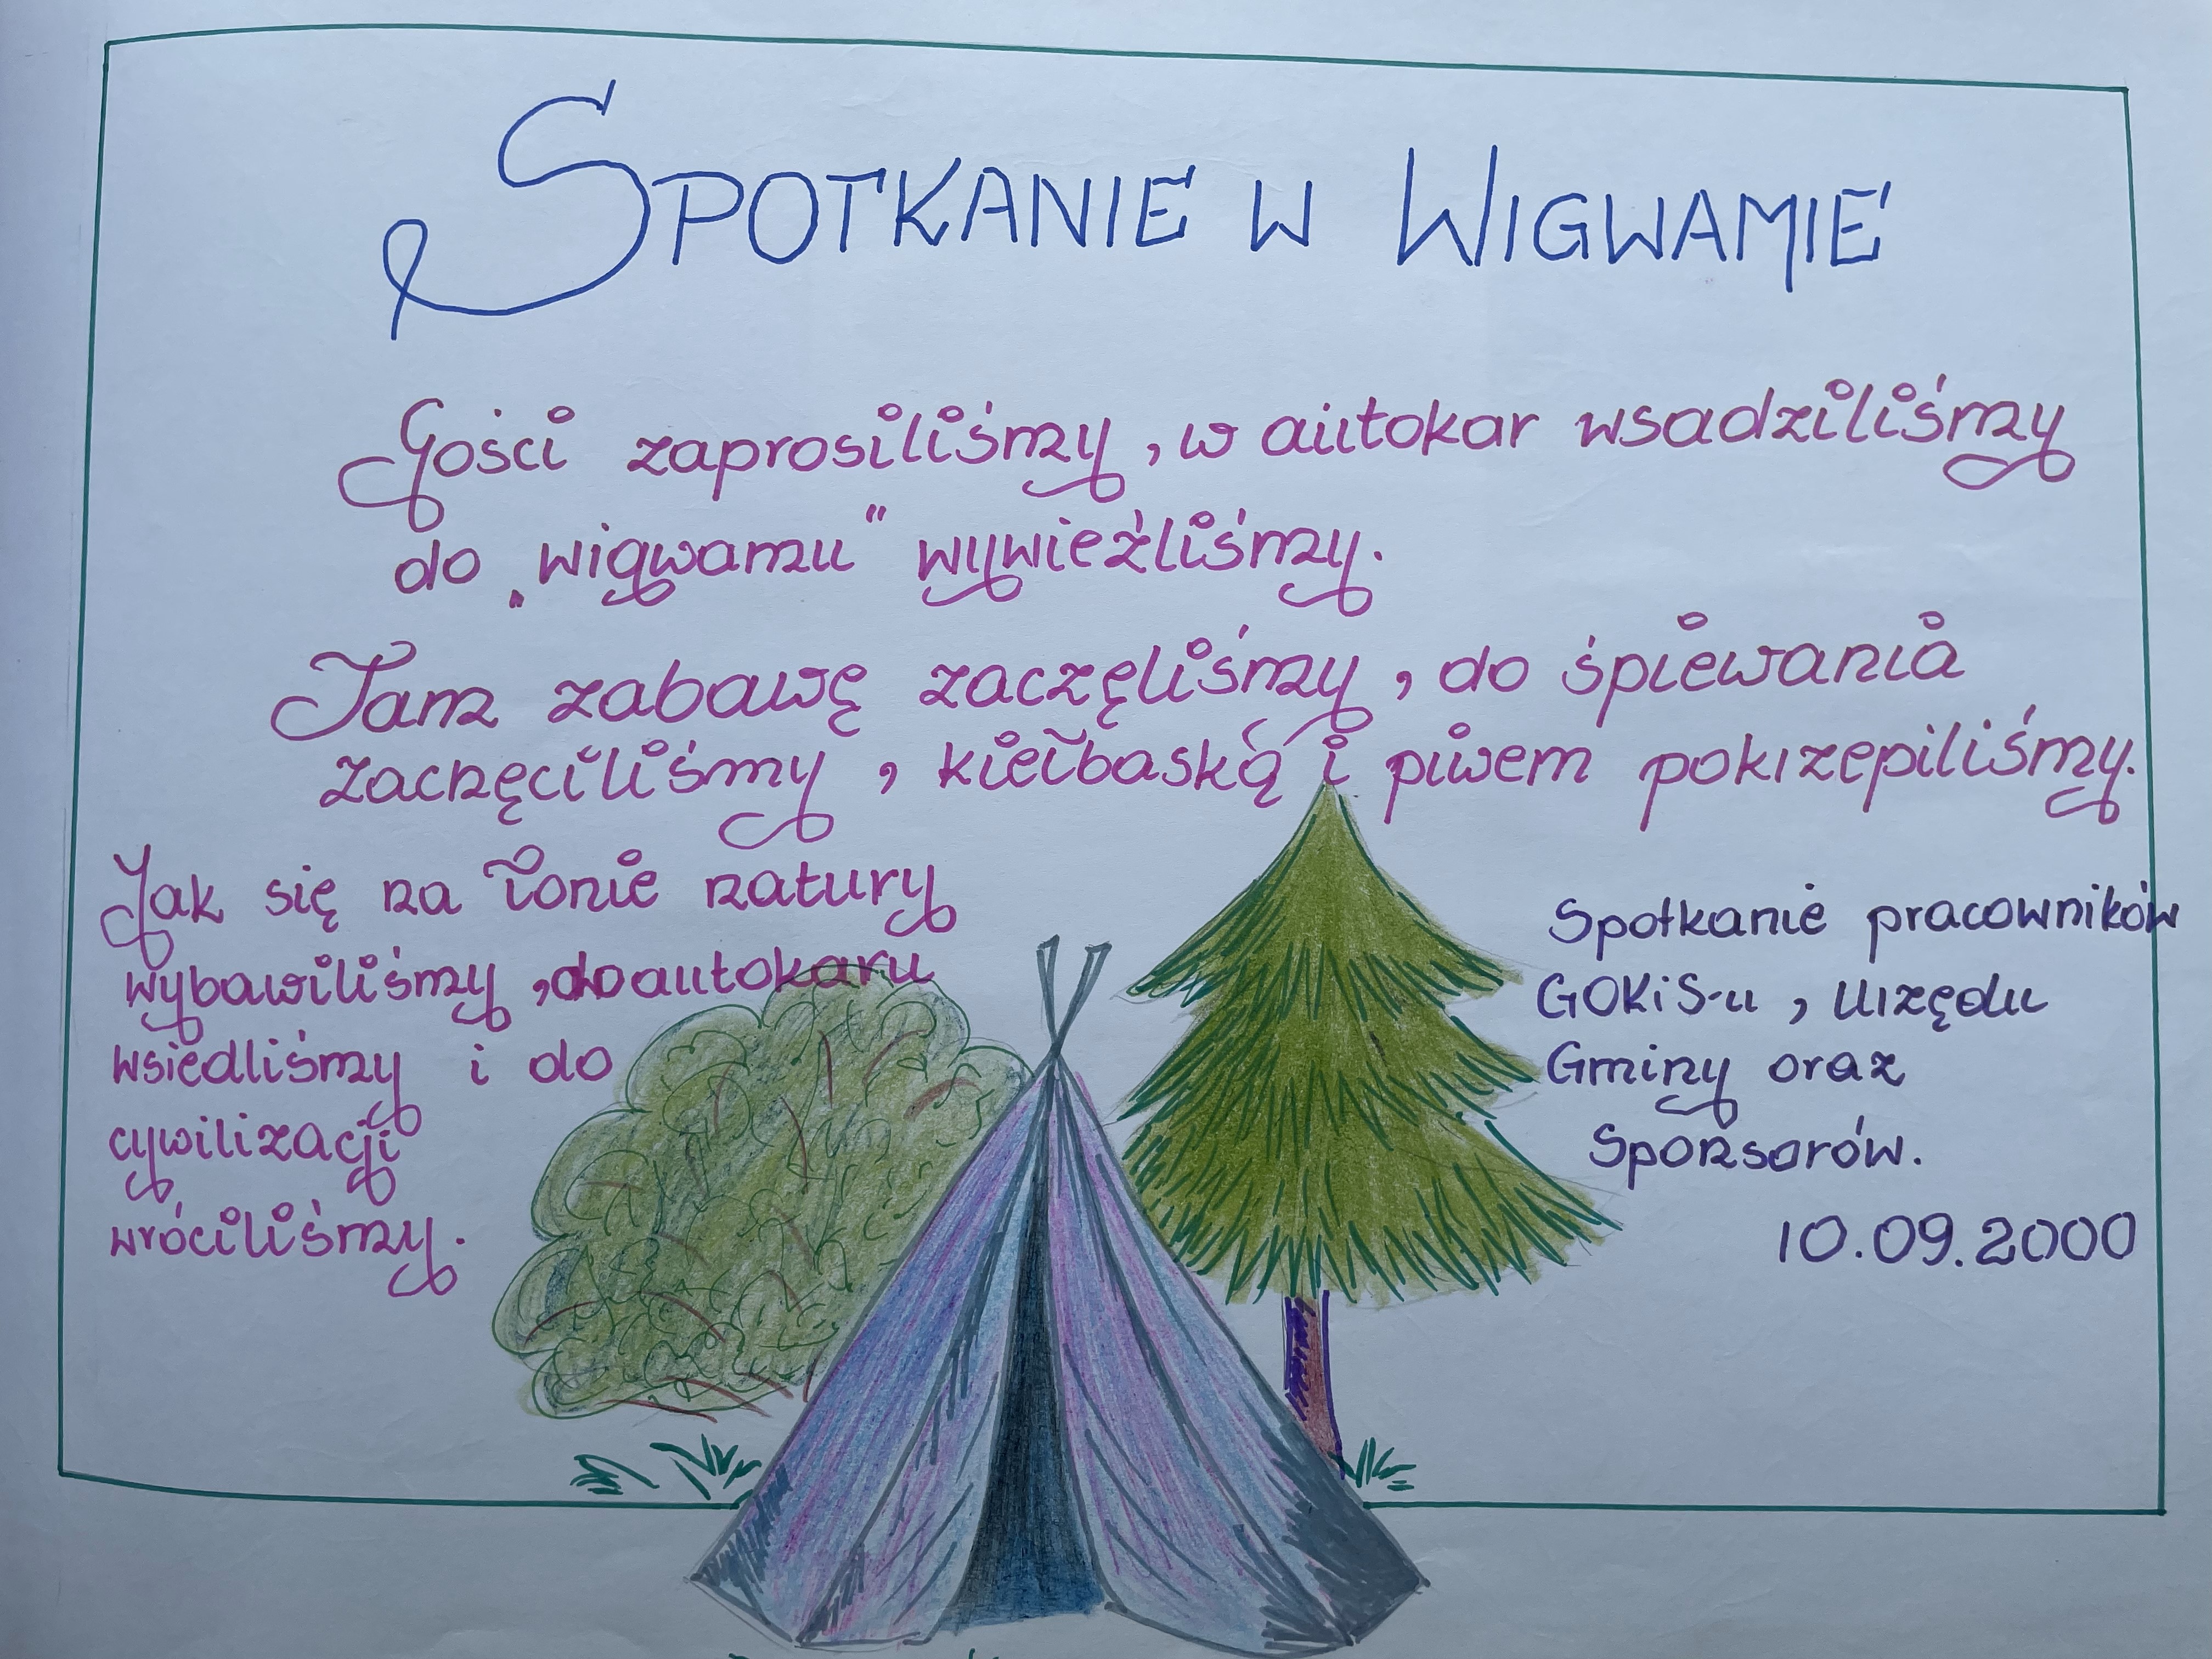 SPOTKANIE W WIGWAMIE
Gości zaprosiliśmy, w autokar wsadziliśmy
do „wigwamu" wywieźliśmy.
Tam zabawę zaczęliśmy, do śpiewania
zachęciliśmy, kiełbaską i piwem pokrzepiliśmy.
Jak się na łonie natury
wybawiliśmy, do autokaru
wsiedliśmy i do
cywilizacji
wróciliśmy.
Spotkanie pracowników
GOKiS-u, Urzędu
Gminy oraz
Sponsorów.
10.09.2000